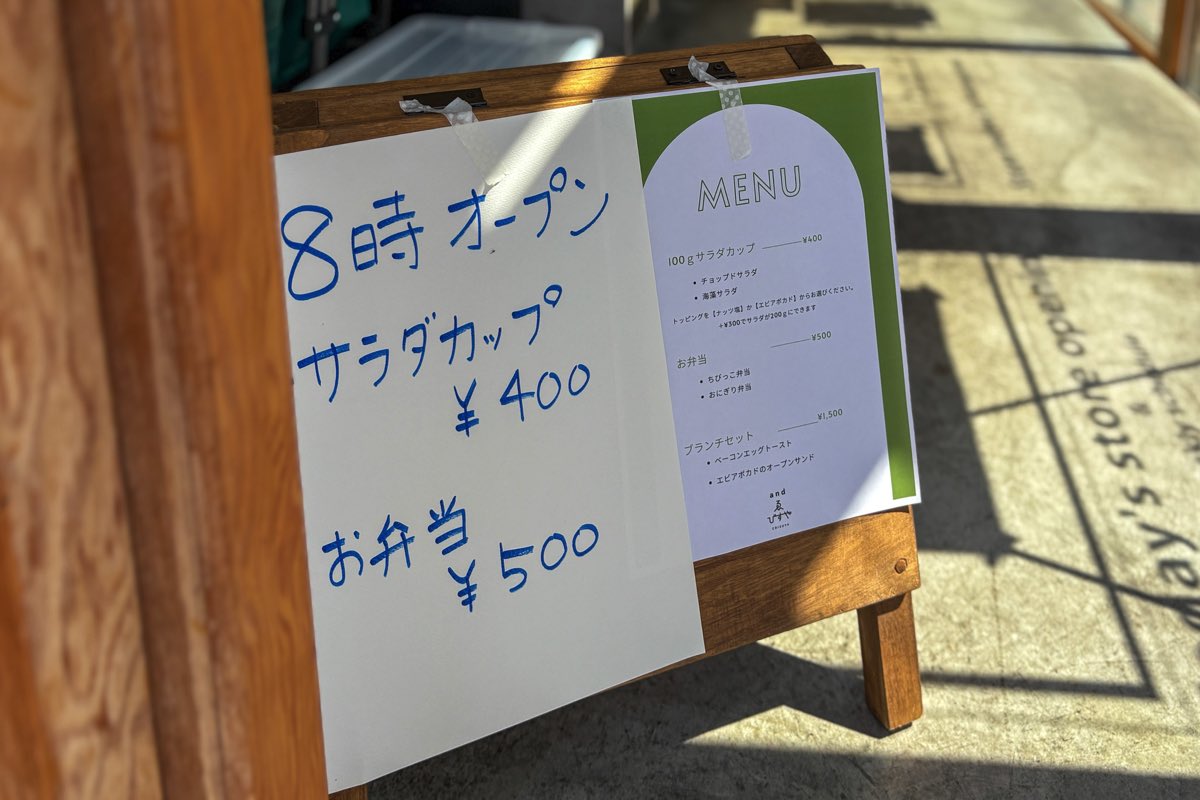 8時 オープン
サラダカップ
¥400
お弁当
¥500
MENU
100gサラダカップ ¥400
• チョップドサラダ
• 海藻サラダ
トッピングを【ナッツ塩】か【エビアボカド】からお選びください。
+¥300でサラダが200gにできます
お弁当 ¥500
• ちびっこ弁当
• おにぎり弁当
ブランチセット ¥1,500
• ベーコンエッグトースト
• エビアボカドのオープンサンド
and
ゑ
びすや
ay's store open
&